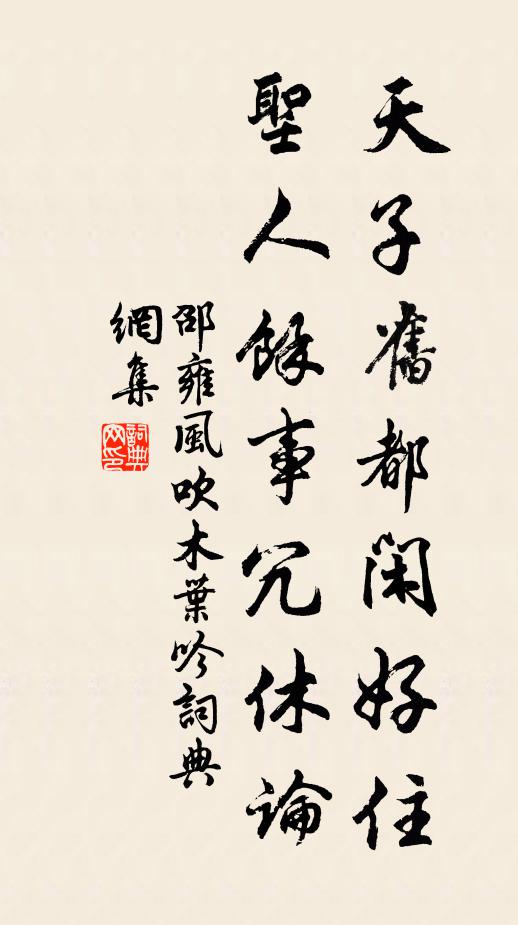 天子舊都閑好住
聖人餘事冗休論
邵雍風吹木葉吟詞典
網集
詞典
网印